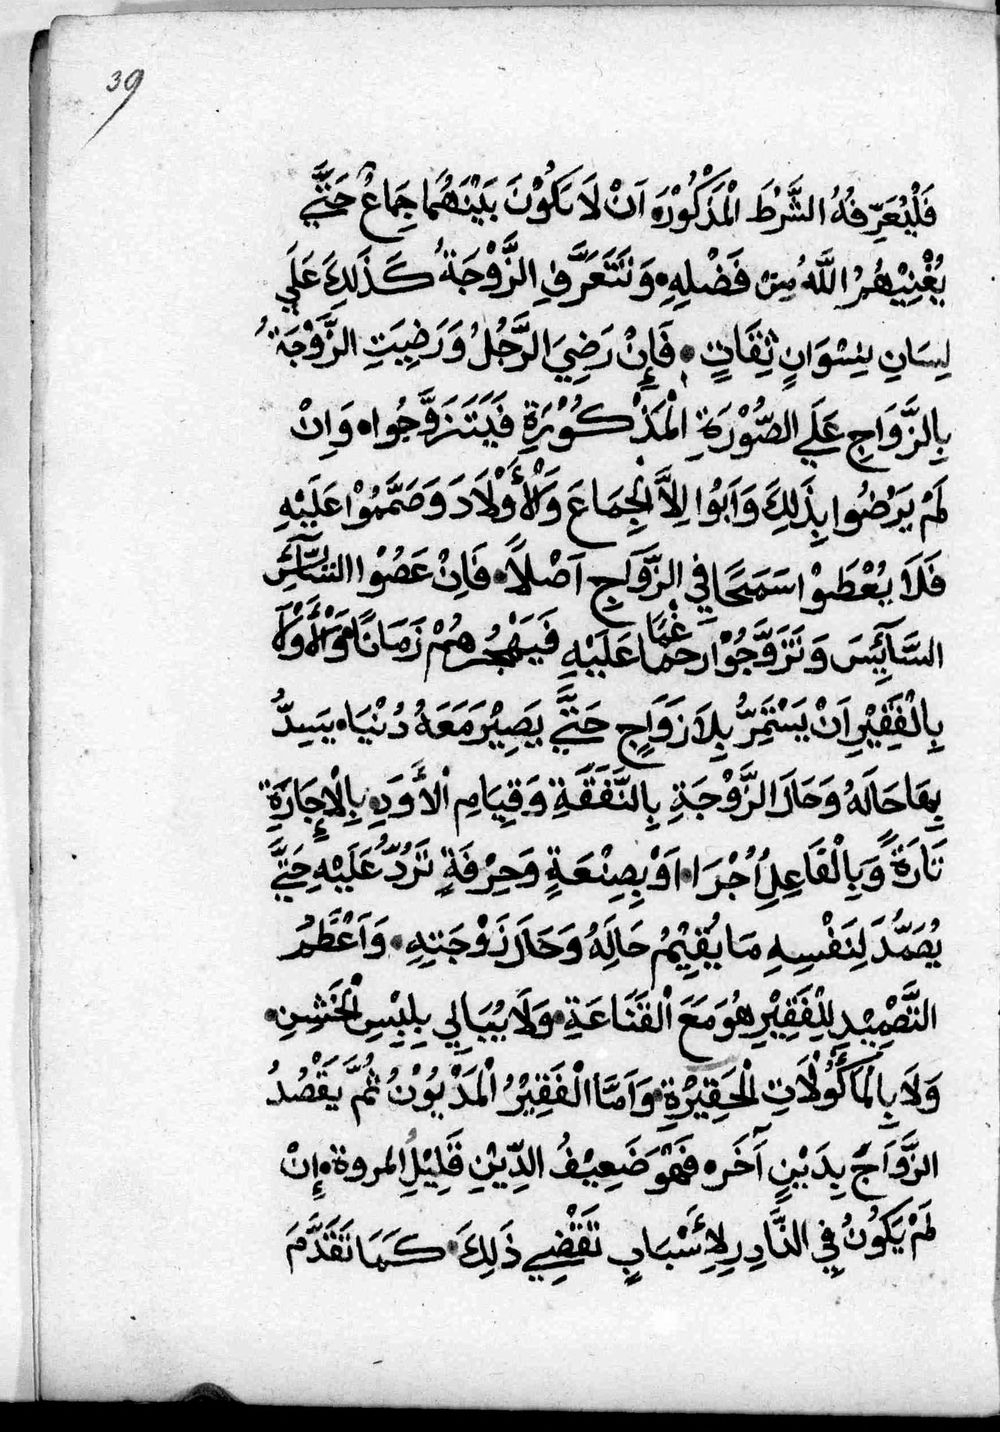 39
فَلْيُعَرِّفُهُ الشَّرْطَ الْمَذْكُوْرَه اَنْ لَا يَكُوْنَ بَيْنَهُمَا جِمَاعُ حَتَّي
يُغْنِيْهُمُ اللَّهُ مِنْ فَضْلِهِ۰ وَتَتَعَرَّفِ الزَّوْجَةُ كَذَلِكَ عَلَي
لِسَانِ نِسْوَانٍ ثِقَاتٍ ۰ فَإِنْ رَضِيَ الرَّجُلُ وَرَضِيَتِ الزَّوْجَةُ
بِالزَّوَاجِ عَلَي الصُّوْرَةِ الْمَذْكُوْرَةِ فَيَتَزَوَّجُوا۰ وَاِنْ
لَمْ يَرْضُوا بِذَلِكَ وَاَبُوا اِلاَّ الْجِمَاعَ وَالْأَوْلَادَ وَصَمَّمُوْا عَلَيْهِ
فَلَا يُعْطَوْا سَمَحًا فِي الزَّوَاجِ اَصْلاً۰ فَاِنْ عَصُوْا
السَّآئِسَ وَتَزَوَّجُوْا رغْمًا عَلَيْهِ فَيَهْجُرهُمْ زَمَانًا۰ وَالْأَوْلَا
بِالْفَقِيْرِ اَنْ يَسْتَمِرُّ بِلَا زَوَاجٍ حَتَّي يَصِيْرَ مَعَهُ دُنْيَا۰ يَسِدُّ
بِهَا حَالَهُ وَحَالَ الزَّوْجَةِ بِالنَّفَقَةِ وَقِيَامِ الْأَوَدِ۰ بِالْإِجَارَةِ
تَارَةً وَبِالْفَاعِلِ اُجْرَا۰ اَوْ بِصِنْعَةٍ وَحِرْفَةٍ تَرُدُّ عَلَيْهِ حَتَّي
يُصَمُّدَ لِنَفْسِهِ مَا يُقِيْمُ حَالَهُ وَحَالَ زَوْجَتِهِ۰ وَاَعْظَمُ
التَّصْمِيْدِ لِلْفَقِيْرِ هُوَ مَعَ الْقَنَاعَةِ۰ وَلَا يُبَالِي بِلِبْسِ الْخَشِنِ۰
وَلَا بِالْمَأَكُوْلَاتِ الْحَقِيْرَةِ۰ وَاَمَّا الْفَقِيْرُ الْمَدْيُوْنُ ثُمَّ يَقْصُدُ
الزَّوَاجَ بِدَيْنٍ آخَر۰ فَهُوَ ضَعِيْفُ الدِّيْنِ قَلِيْلُ المروة۰ إِنْ
لَمْ يَكُوْنُ فِي النَّادِرِ لِأَسْبَابٍ تَقْضِي ذَلِكَ۰ كَمَا تَقَدَّمَ